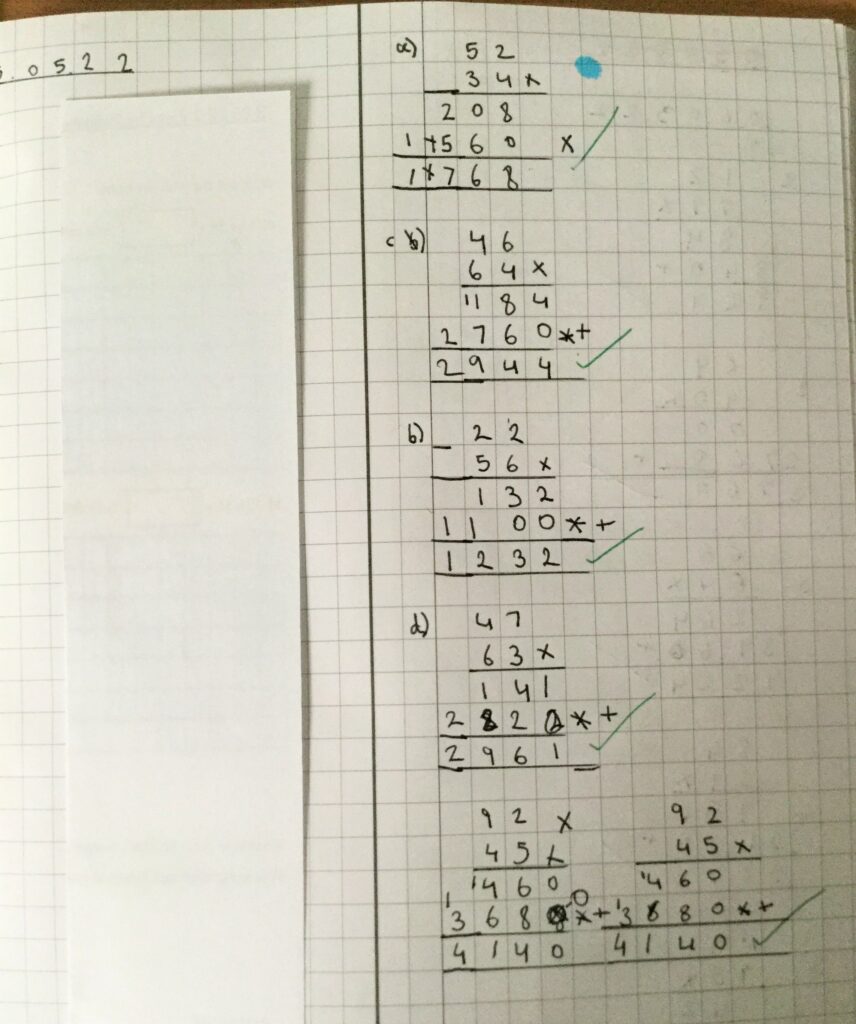 5.05.22
a) 52
34x
208
1560 x
1768
c) 46
64x
184
2760+
2944
b) 22
56x
132
1100+
1232
d) 47
63x
141
2820+
2961
92 x
45x
1460
3680+
4140
92
45x
1460
13680+
4140